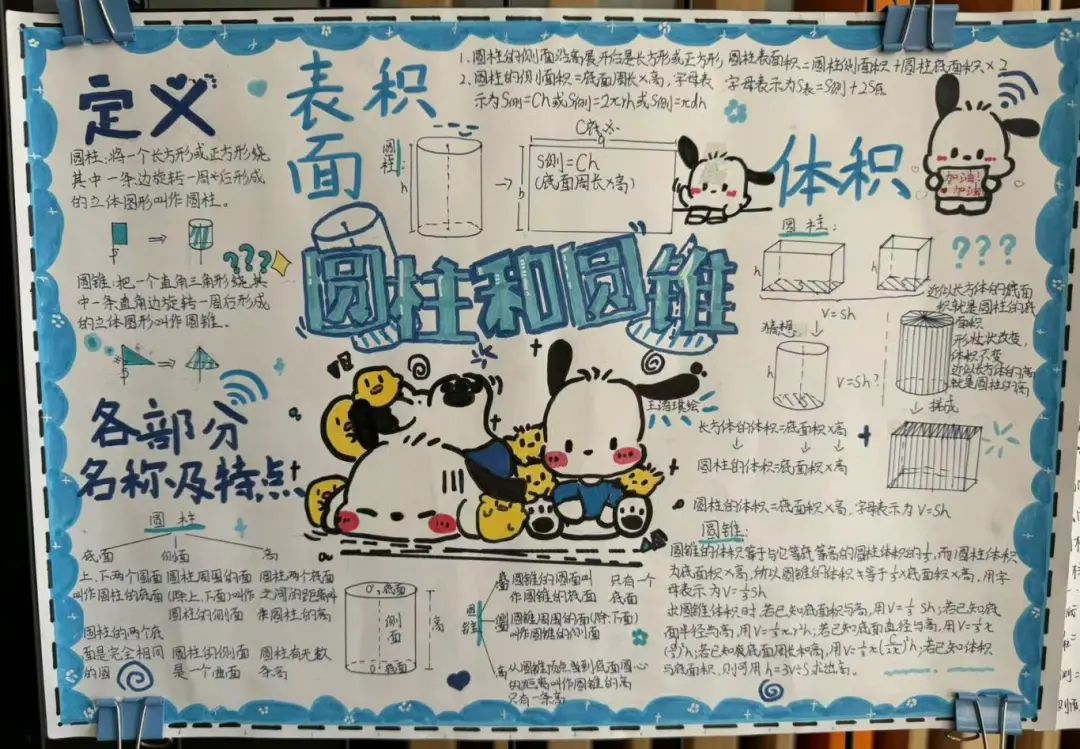 定义
圆柱:将一个长方形或正方形绕
其中一条边旋转一周后形成
的立体图形叫作圆柱。
圆锥:把一个直角三角形绕其
中一条直角边旋转一周后形成
的立体图形叫作圆锥。
???
表面积
1.圆柱的侧面沿高展开后是长方形或正方形,圆柱表面积=圆柱侧面积+圆柱底面积×2
2.圆柱的侧面积=底面周长×高,字母表
示为S侧=Ch或S侧=2πrh或S侧=πdh
字母表示为S表=S侧+2S底
圆柱:
h
S侧=Ch
(底面周长×高)
圆柱和圆锥
体积
加油!
加油!
圆柱:
h
h
V=Sh
猜想:
h
V=Sh?
???
近似长方体的底面
积就是圆柱的底
面积
形状改变,
体积不变
近似长方体的高
就是圆柱的高
拼成
长方体的体积=底面积×高
圆柱的体积=底面积×高
圆柱的体积=底面积×高,字母表示为V=Sh
圆锥:
圆锥的体积等于与它等底等高的圆柱体积的⅓,而圆柱体积
为底面积×高,所以圆锥的体积等于⅓×底面积×高,用字
母表示为V=⅓Sh
求圆锥体积时,若已知底面积与高,用V=⅓Sh;若已知底
面半径与高,用V=⅓πr²h;若已知底面直径与高,用V=⅓π
(d/2)²h;若已知底面周长和高,用V=⅓π(C/2π)²h;若已知体积
与底面积,则可用h=3V÷S求出高。
各部分
名称及特点
圆柱
底面 侧面 高
上、下两个圆面 圆柱周围的面 圆柱两个底面
叫作圆柱的底面 (除上、下面)叫作 之间的距离叫
圆柱的侧面 作圆柱的高
圆柱的两个底
面是完全相同 圆柱的侧面 圆柱有无数
的圆 是一个曲面 条高
底面
侧面
高
底面
圆锥
圆锥的圆面叫 只有一个
作圆锥的底面 底面
侧 圆锥周围的面(除下面)
叫作圆锥的侧面
高 从圆锥顶点到底面圆心
的距离叫作圆锥的高
只有一条高